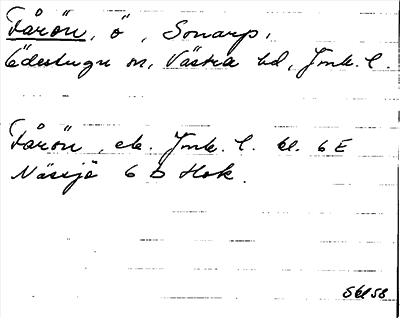 Fårön, ö, Sonarp,
Ödestugu sn, Västra hd, Jmk. l.
Fårön, ek. Jmk. l. bl. 6 E
Nässjö 6 D Hok.
Skl 58